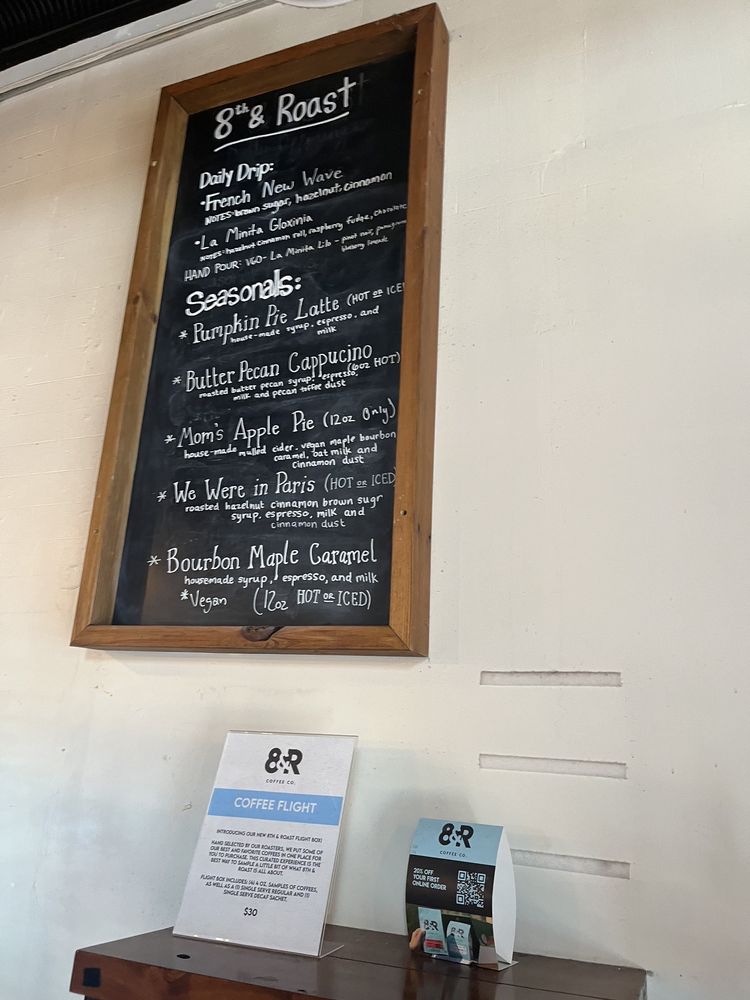 8th & Roast
Daily Drip:
•French New Wave
NOTES: brown sugar, hazelnut, cinnamon
•La Minita Gloxinia
NOTES: hazelnut cinnamon roll, raspberry fudge, chocolate
HAND POUR: V60- La Minita Lib - pinot noir,
Seasonals:
* Pumpkin Pie Latte (HOT OR ICE
house-made syrup, espresso, and
milk
* Butter Pecan Cappucino
(6oz HOT)
roasted butter pecan syrup, espresso,
milk and pecan toffee dust
* Mom's Apple Pie (12oz Only)
house-made mulled cider, vegan maple bourbon
caramel, oat milk and
cinnamon dust
* We Were in Paris (HOT OR ICED
roasted hazelnut cinnamon brown sugr
syrup, espresso, milk and
cinnamon dust
* Bourbon Maple Caramel
housemade syrup, espresso, and milk
*Vegan (12oz HOT OR ICED)
8&R
COFFEE CO.
COFFEE FLIGHT
INTRODUCING OUR NEW 8TH & ROAST FLIGHT BOX!
HAND SELECTED BY OUR ROASTERS, WE PUT SOME OF
OUR BEST AND FAVORITE COFFEES IN ONE PLACE FOR
YOU TO PURCHASE. THIS CURATED EXPERIENCE IS THE
BEST WAY TO SAMPLE A LITTLE BIT OF WHAT 8TH &
ROAST IS ALL ABOUT.
FLIGHT BOX INCLUDES: (4) 4 OZ. SAMPLES OF COFFEES,
AS WELL AS A (1) SINGLE SERVE REGULAR AND (1)
SINGLE SERVE DECAF SACHET.
$30
8&R
COFFEE CO.
20% OFF
YOUR FIRST
ONLINE ORDER
8&R
8&R